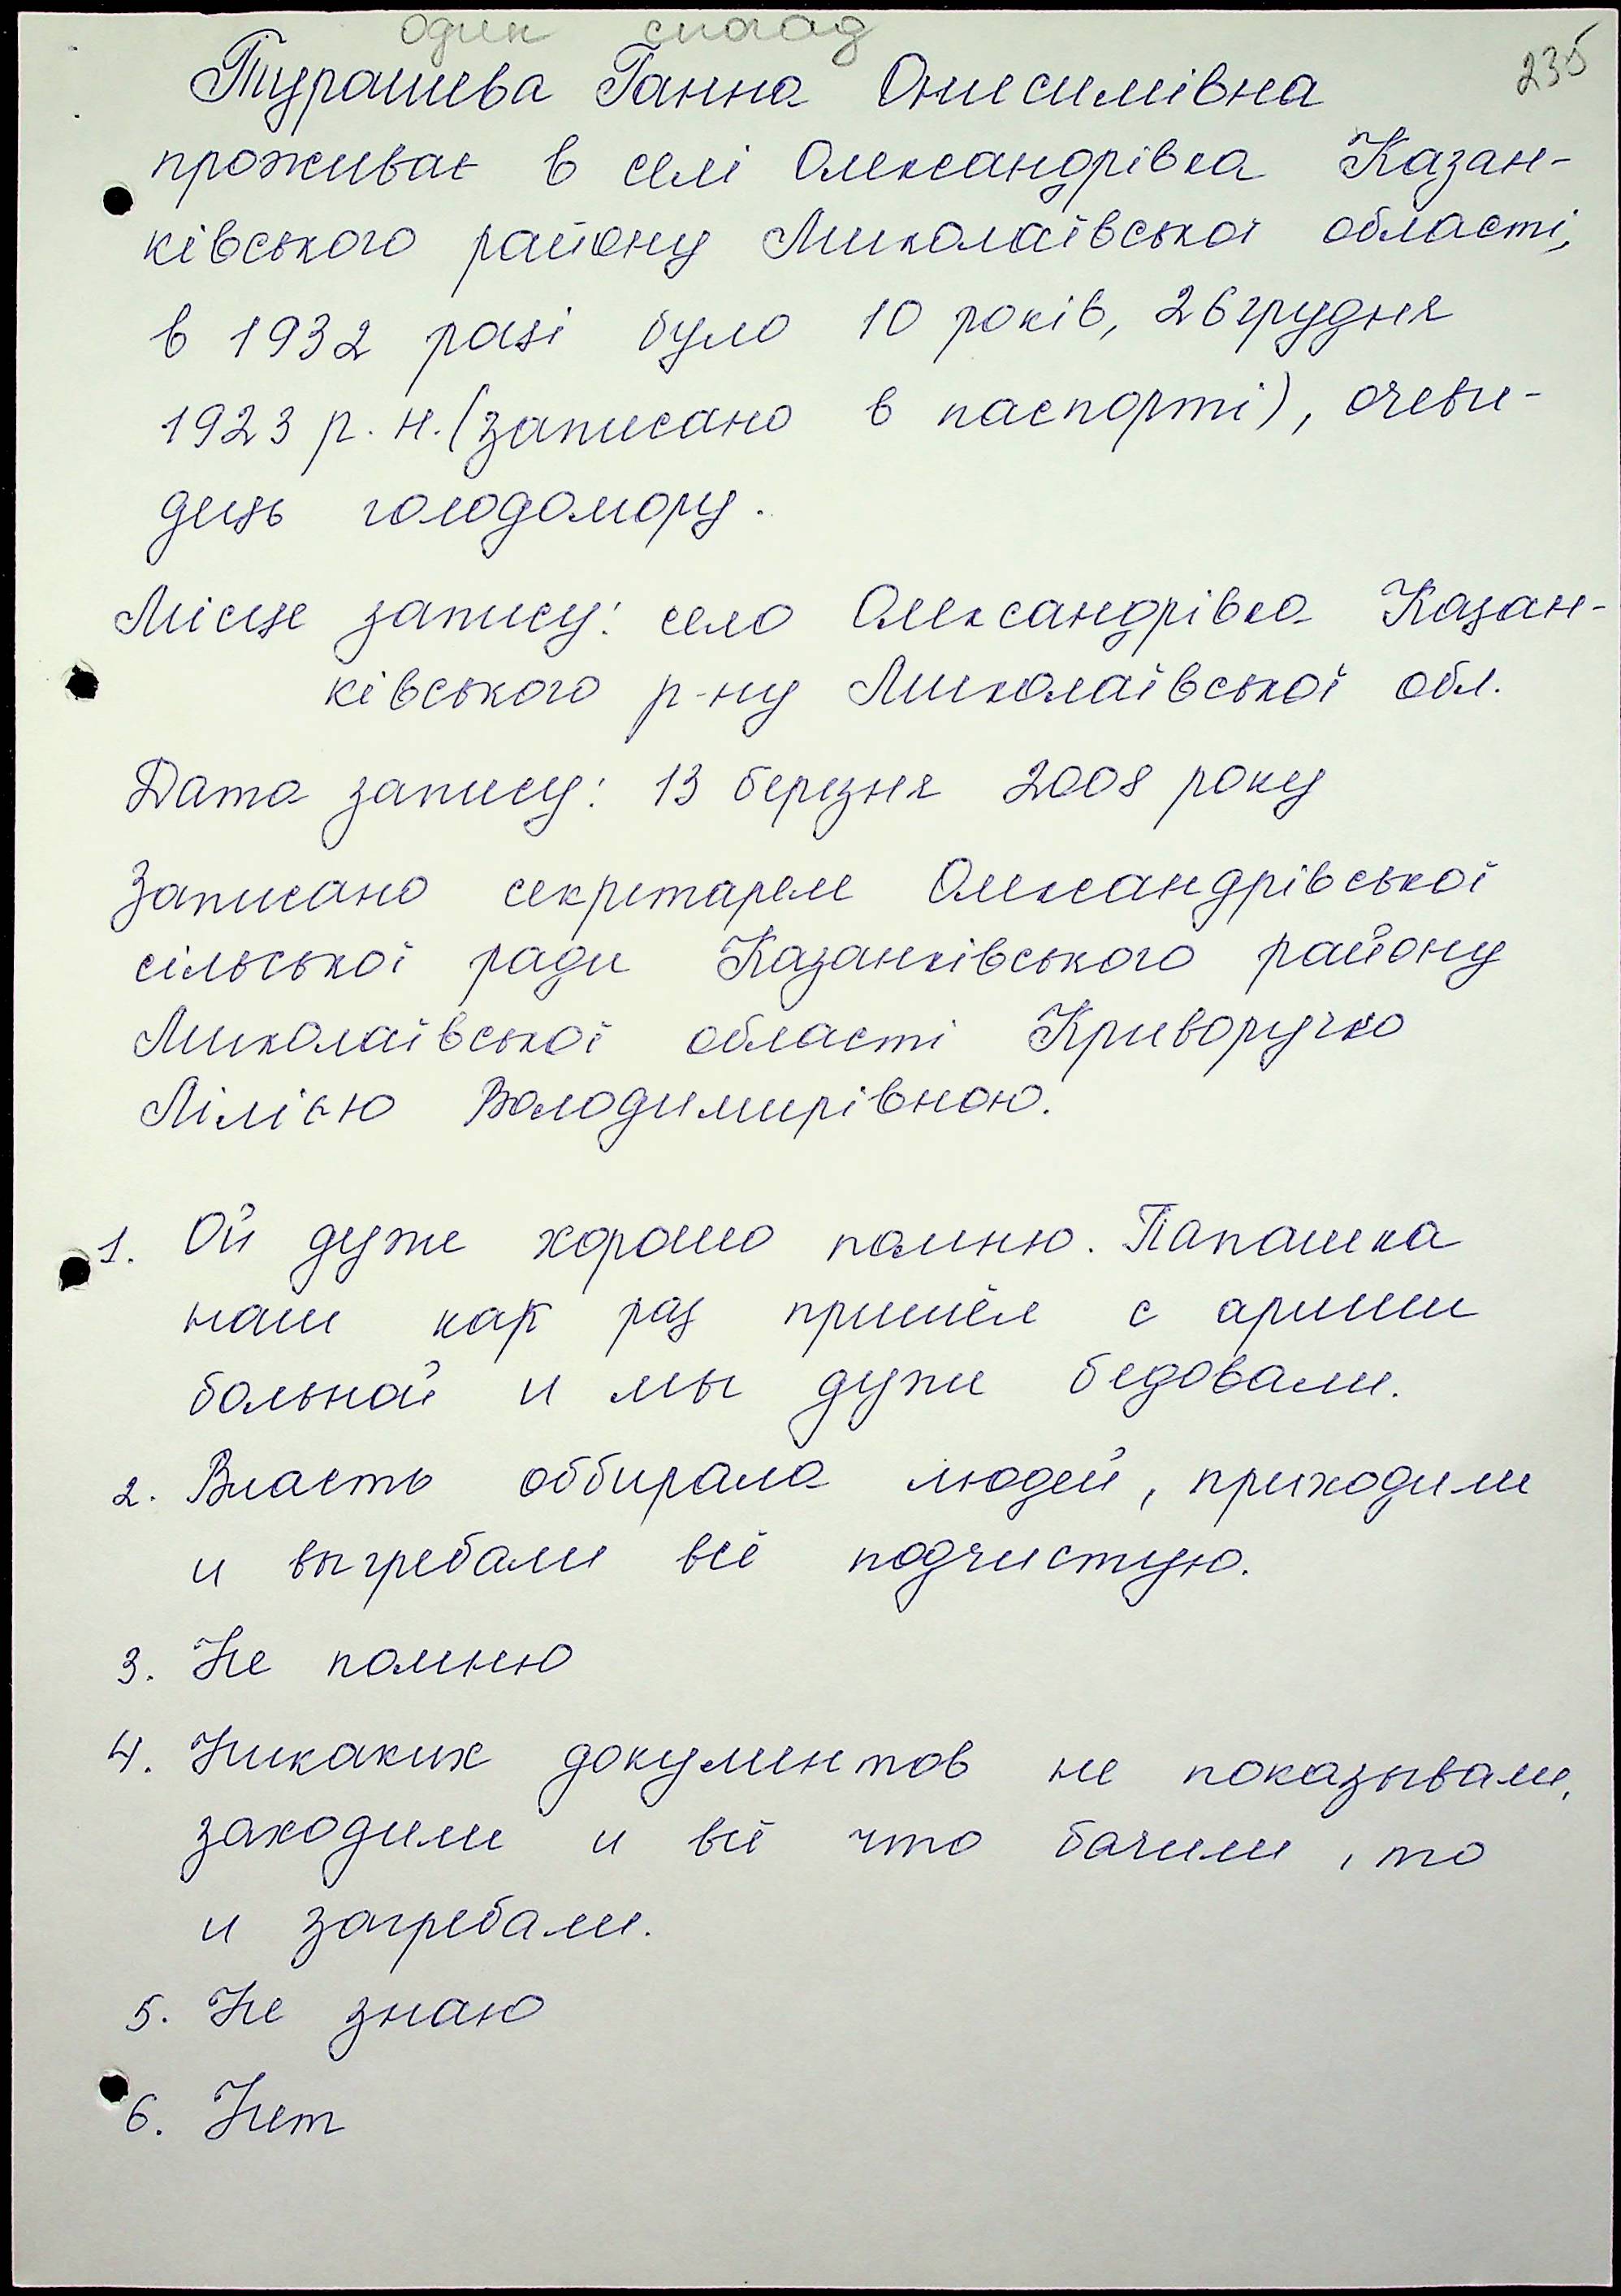 один спогад
235
Турашева Ганна Онисимівна
проживає в селі Олександрівка Казан-
ківського району Миколаївської області,
в 1932 році було 10 років, 26 грудня
1923 р. н. (записано в паспорті), очеви-
дець голодомору.
Місце запису: село Олександрівка Казан-
ківського р-ну Миколаївської обл.
Дата запису: 13 березня 2008 року
Записано секретарем Олександрівської
сільської ради Казанківського району
Миколаївської області Криворучко
Лілією Володимирівною.
1. Ой дуже хорошо помню. Папашка
наш как раз пришёл с армии
больной и мы дуже бедовали.
2. Власть оббирала людей, приходили
и выгребали всё подчистую.
3. Не помню
4. Никаких документов не показывали,
заходили и всё что бачили, то
и загребали.
5. Не знаю
6. Нет